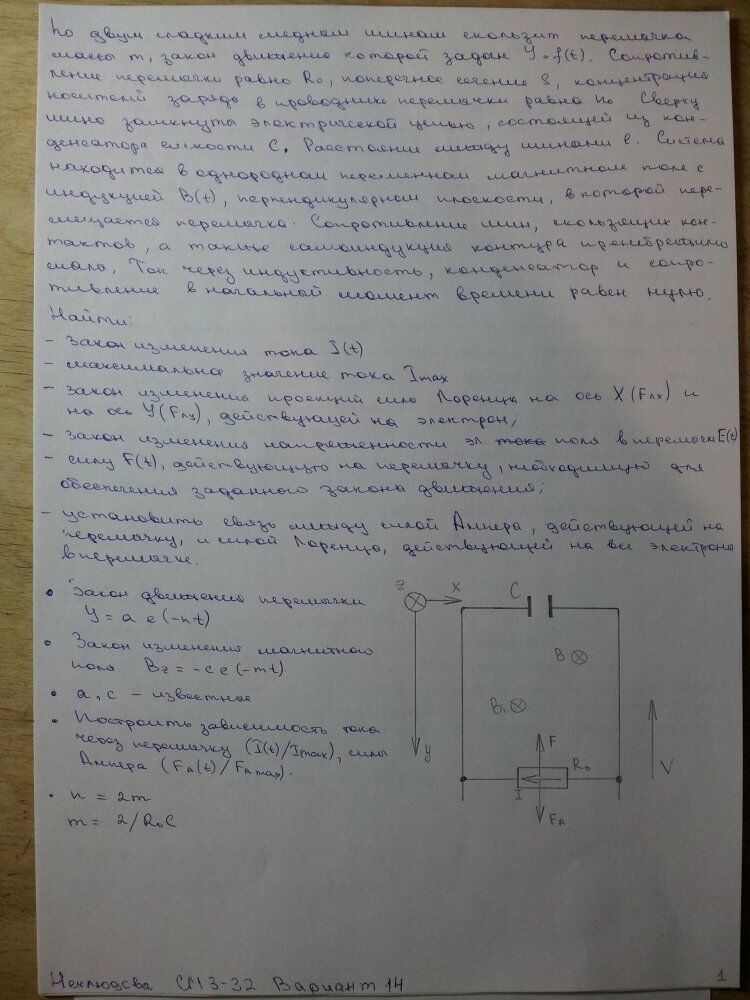 По двум гладким медным шинам скользит перемычка
массы m, закон движения которой задан Y=f(t). Сопротив-
ление перемычки равно R₀, поперечное сечение S, концентрация
носителей заряда в проводнике перемычки равна n₀. Сверху
шины замкнуты электрической цепью, состоящей из кон-
денсатора ёмкости C. Расстояние между шинами l. Система
находится в однородном переменном магнитном поле с
индукцией B(t), перпендикулярном плоскости, в которой пере-
мещается перемычка. Сопротивление шин, скользящих кон-
тактов, а также самоиндукция контура пренебрежимо
малы. Ток через индуктивность, конденсатор и сопро-
тивление в начальный момент времени равен нулю.
Найти:
- закон изменения тока I(t)
- максимальное значение тока Imax
- закон изменения проекций силы Лоренца на ось X (Fлx) и
на ось Y (Fлy), действующей на электрон;
- закон изменения напряженности эл поля в перемычке E(t)
- силу F(t), действующую на перемычку, необходимую для
обеспечения заданного закона движения;
- установить связь между силой Ампера, действующей на
перемычку, и силой Лоренца, действующей на все электроны
в перемычке.
• Закон движения перемычки
Y = a e (-nt)
• Закон изменения магнитного
поля Bz = -c e (-mt)
• a, c - известные
• Построить зависимость тока
через перемычку (I(t)/Imax), силы
Ампера (FA(t)/FAmax).
• n = 2m
m = 2/R₀C
Z
X
C
B
Bi
F
R₀
I
V
y
FA
Неклюдова СМ3-32 Вариант 14
1